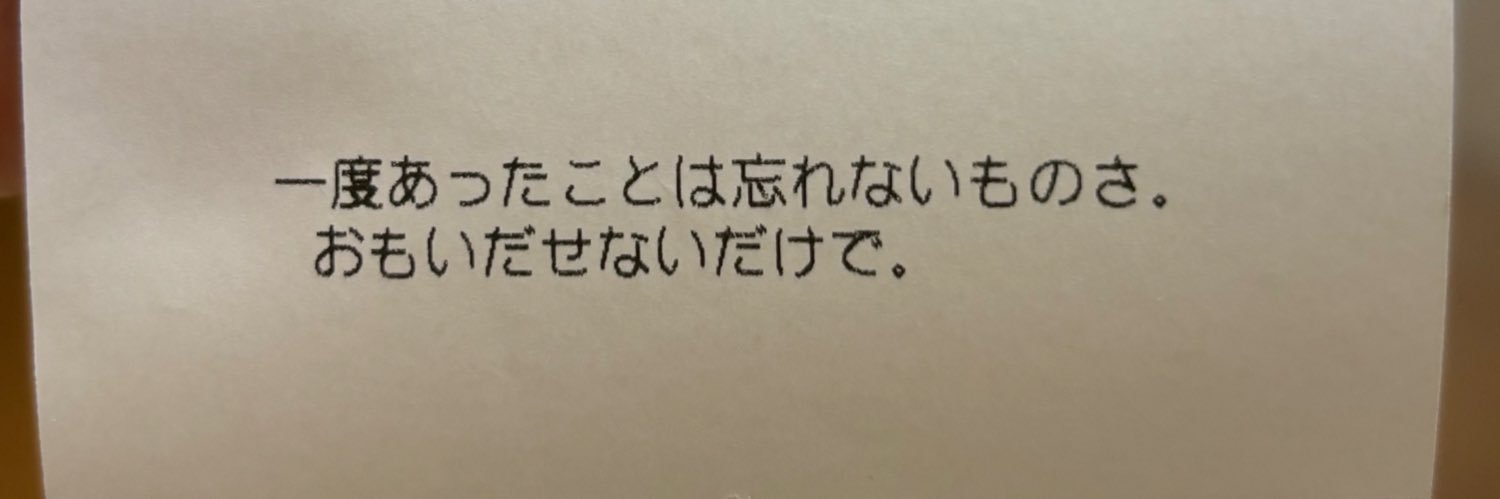 一度あったことは忘れないものさ。
おもいだせないだけで。